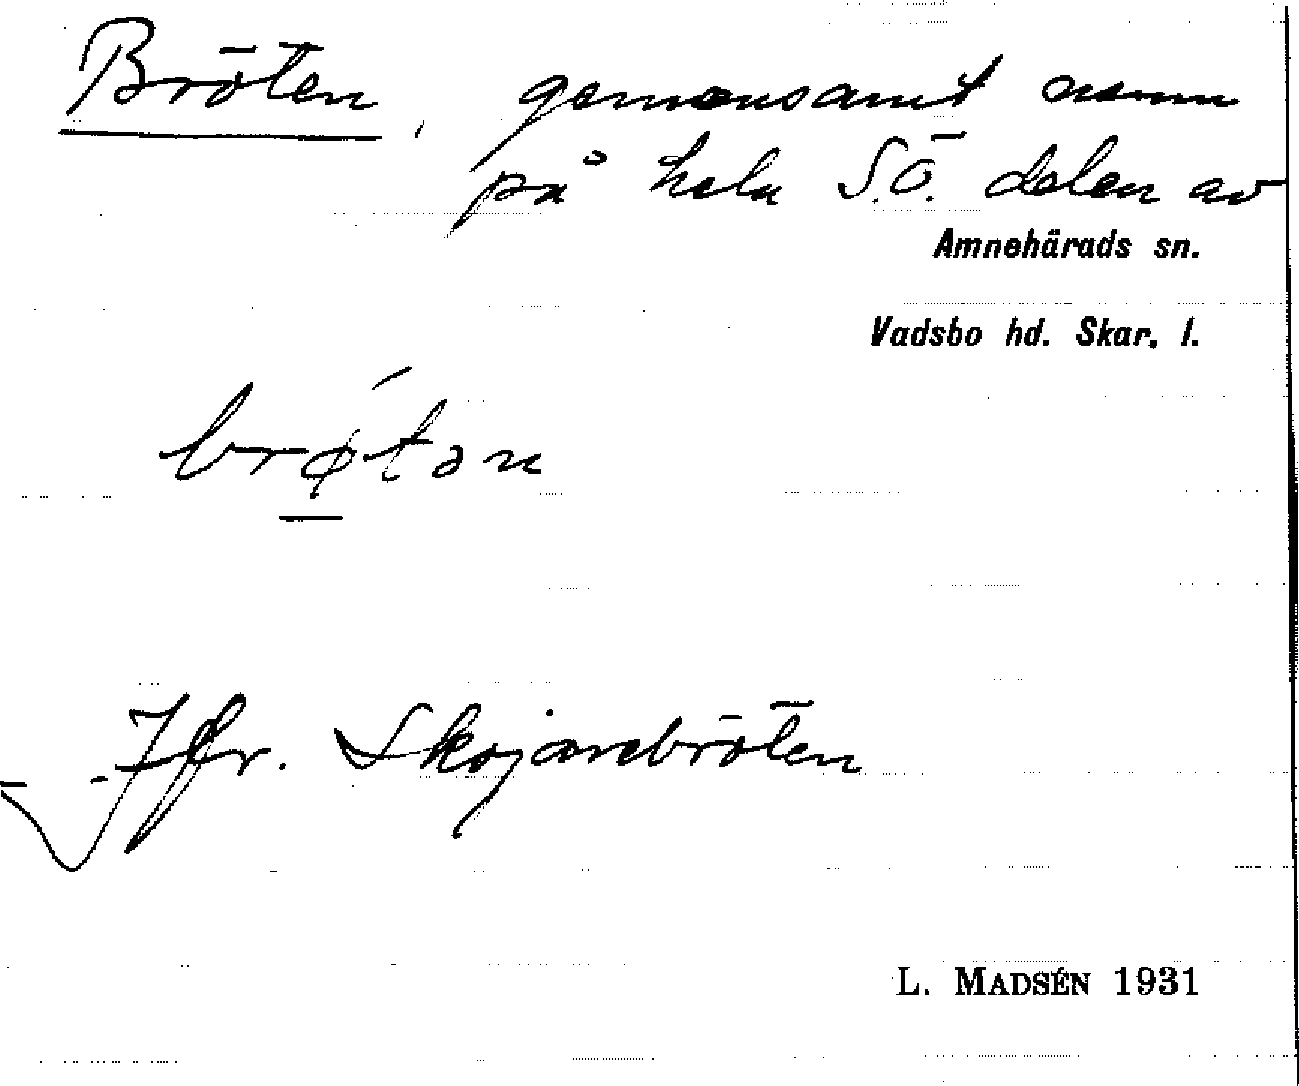 Bröten, gemensamt namn
på hela S.Ö. delen av
Amnehärads sn.
Vadsbo hd. Skar. l.
brǿ̨tən
Jfr. Skojarebröten
L. MADSÉN 1931